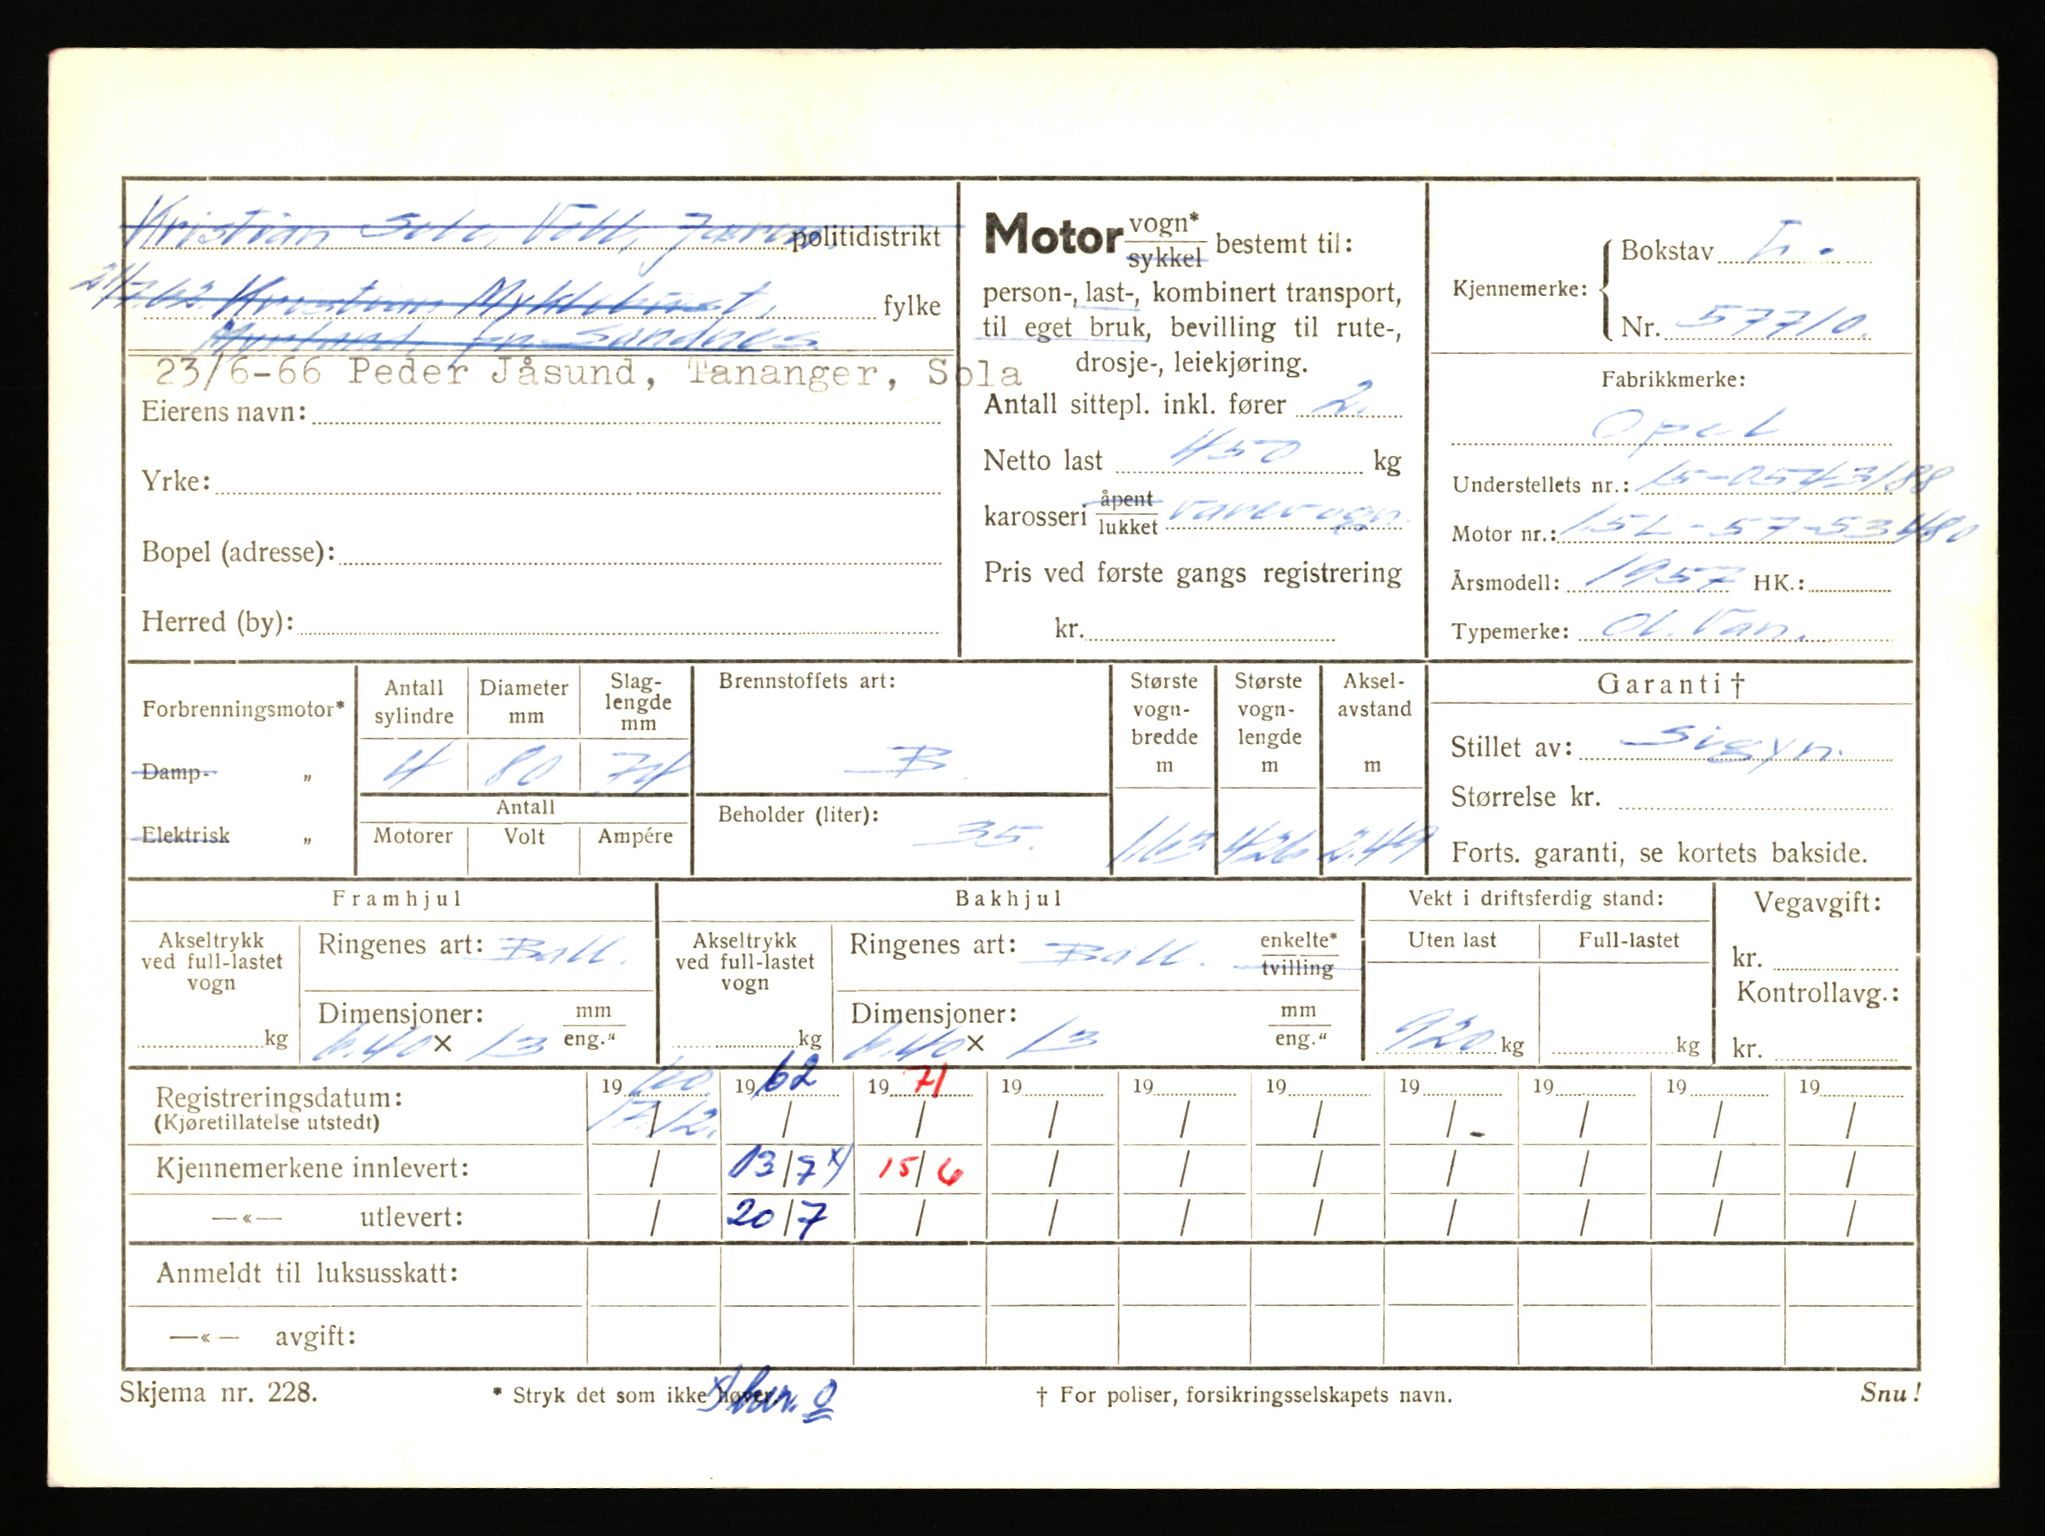 Kristian Sele, Voll, Jæren. politidistrikt
21/7.62. Kristian Myklebust, fylke
Myrland, pr. Sandnes.
23/6-66 Peder Jåsund, Tananger, Sola
Eierens navn:
Yrke:
Bopel (adresse):
Herred (by):
Motor vogn* sykkel bestemt til:
person-, last-, kombinert transport,
til eget bruk, bevilling til rute-,
drosje-, leiekjøring.
Antall sittepl. inkl. fører 2.
Netto last 450 kg
karosseri åpent lukket Varevogn.
Pris ved første gangs registrering
kr.
Kjennemerke: Bokstav L.
Nr. 57710.
Fabrikkmerke:
Opel
Understellets nr.: 15-0543188
Motor nr.: 1.5L-57-53480
Årsmodell: 1957 HK.:
Typemerke: Ol. Van.
Forbrenningsmotor*
Damp- „
Elektrisk „
Antall sylindre
Diameter mm
Slag-lengde mm
4 80 74
Antall
Motorer Volt Ampére
Brennstoffets art:
B.
Beholder (liter):
35.
Største vogn-bredde m
1.63
Største vogn-lengde m
426
Aksel-avstand m
2.49
Garanti †
Stillet av: Sigyn.
Størrelse kr.
Forts. garanti, se kortets bakside.
Framhjul
Akseltrykk ved full-lastet vogn
kg
Ringenes art: Ball.
Dimensjoner: mm eng."
6.40 x 13
Bakhjul
Akseltrykk ved full-lastet vogn
kg
Ringenes art: Ball. enkelte* tvilling
Dimensjoner: mm eng."
6.40 x 13
Vekt i driftsferdig stand:
Uten last Full-lastet
920 kg kg
Vegavgift:
kr.
Kontrollavg.:
kr.
Registreringsdatum: 1960 1962 1971 19 19 19 19 19 19 19
(Kjøretillatelse utstedt) 17/12. / / / / / / / / /
Kjennemerkene innlevert: / 13/7 x) 15/6 / / / / / / /
—«— utlevert: / 20/7 / / / / / / / /
Anmeldt til luksusskatt:
—«— avgift:
Skjema nr. 228.
* Stryk det som ikke høver.
† For poliser, forsikringsselskapets navn.
Snu!